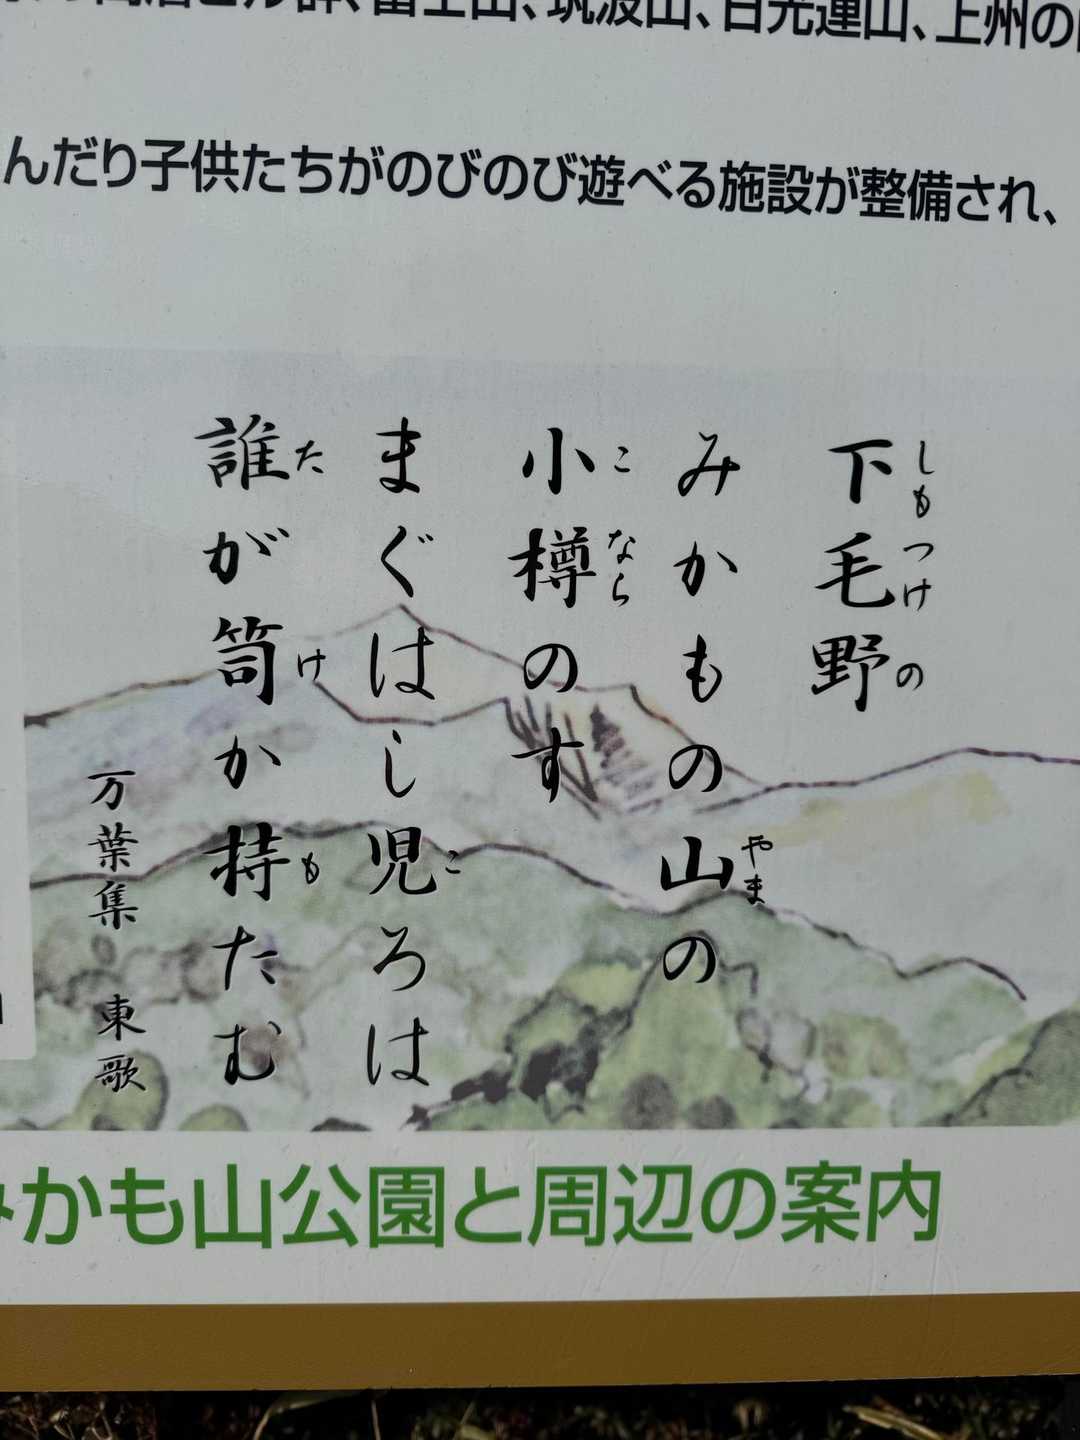 富士山、筑波山、日光連山、上州の
んだり子供たちがのびのび遊べる施設が整備され、
下毛野
しもつけの
みかもの山の
やま
小樽のす
こなら
まぐはし児ろは
こ
誰が笥か持たむ
たけも
万葉集 東歌
みかも山公園と周辺の案内